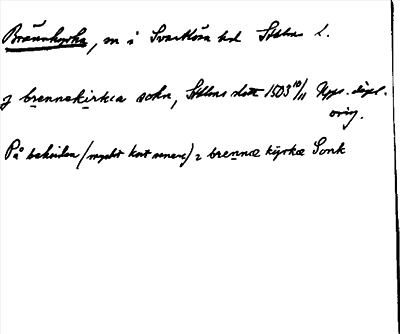 Brännkyrka, sn i Svartlösa hd Sthlms l.
j brennekirkia sokn, Sthlms slott 1503 10/11 Upps. dipl. orig.
På baksidan (mycket kort senare) 2 brennæ kyrkæ Sonk